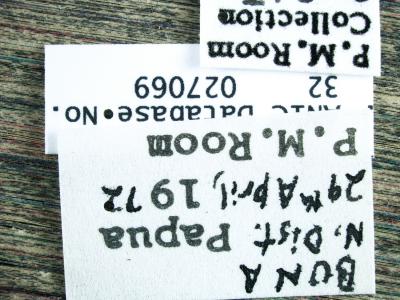 BUNA
N. Dist. Papua
29th April, 1972
P.M. Room
ANIC Database•No.
32 027069
P.M. Room
Collection